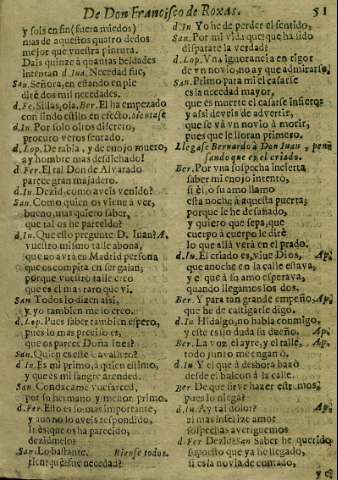 De Don Francisco de Roxas. 51
y sois en fin (fuera miedos)
mas de aquestos quatro dedos
mejor que vuestra pintura.
Dais quinze à quantas beldades
intentan d. Iua. Necedad fue,
San. Señora, en estando en pie
dirè dos mil necedades.
d. Fe. Sillas, ola, Ber. El ha empezado
con lindo estilo en efecto. sientase
d. In. Por solo otros discreto,
procuro veros sentado.
d. Lop. De rabia, y de enojo muero,
ay hombre mas desdichado!
d. Fer. El tal Don de Alvarado
parece gran majadero.
d. In. Dezid, como aveis venido?
San. Como quien os viene à ver,
bueno, mas quiero saber,
que tal os he parecido?
d. In. Que esto pregunte D. Iuan? A.
vuestro mismo talle abona,
que no avrà en Madrid persona
que os compita en ser galan;
porque vuestro talle creo
que es el mas raro que vi.
San Todos lo dizen assi,
y yo tambien me lo creo.
d. Lop. Pues saber tambien espero,
pues lo mas preciso es,
que os parece Doña Ines?
San. Quien es este Cavallero?
d. In. Es mi primo, à quien estimo,
y que es mi sangre atended.
San. Conozcame vuesarced,
por su hermano, y menor primo.
d. Fer. Esto es lo mas importante,
y aun no lo aveis respondido,
Ines que os ha parecido,
dezidmelo?
San. Lo bastante. Riense todos.
pienso que fue necedad?
d. In Yo he de perder el sentido,
San. Por mi vida que que ha sido
disparate la verdad?
d. Lop. Vna ignorancia en rigor
de vn novio, no ay que admirarse,
San. Primo para mi el casarse
es la necedad mayor,
que es muerte el casarse infiero,
y assi deveis de advertir,
que se và vn novio à morir,
pues que le lloran primero.
Llegase Bernardo à Don Iuan, pensando que es el criado.
Ber. Por vna sospecha incierta
saber mi enojo intentò,
si èl, o su amo llamo
esta noche à aquesta puerta;
porque le he desafiado,
y quiero que sepa, que
cuerpo à cuerpo le darè
lo que allà verà en el prado.
d. Iu. El criado es, vive Dios, Ap.
que anoche en la calle estava,
y el que à su amo esperava,
quando llegamos los dos.
Ber. Y para tan grande empeño,
que he de castigarle digo.
d. Iu. Hidalgo, no habla conmigo,
y este es sin duda su dueño. Ap.
Ber. La voz, el ayre, y el talle,
todo junto me engañò.
d. Iu. Y el que à deshora baxò
desde el balcon à la calle.
Ber. De que sirve hazer estremos,
pues lo niega?
d. Iu. Ay tal dolor? Ap.
el mas infelize amor
sospechas averiguemos
d. Fer Dezid? San Saber he querido
supuesto que ya he llegado,
si esta novia de contado,
y es